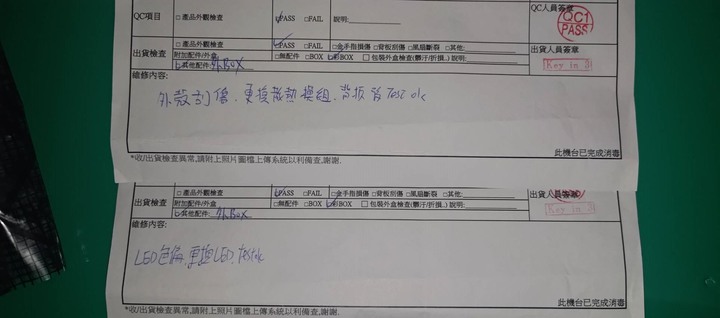 QC項目 □產品外觀檢查 ☑PASS □FAIL 說明:
QC人員簽章
QC1
PASS
出貨檢查 □產品外觀檢查 ☑PASS □FAIL □金手指損傷 □背板刮傷 □風扇斷裂 □其他:
附加配件/外盒 □無配件 □BOX ☑彩BOX □包裝外盒檢查(髒汙/折損..) 說明:
☑其他配件: 外BOX
出貨人員簽章
Key in
維修內容:
外殼刮傷，更換散熱模組，背板 Test ok
此機台已完成消毒
*收/出貨檢查異常,請附上照片圖檔上傳系統以利備查,謝謝.
出貨檢查 □產品外觀檢查 ☑PASS □FAIL □金手指損傷 □背板刮傷 □風扇斷裂 □其他:
附加配件/外盒 □無配件 □BOX ☑彩BOX □包裝外盒檢查(髒汙/折損..) 說明:
☑其他配件: 外BOX
出貨人員簽章
Key in
維修內容:
LED色偏，更換LED，test ok
此機台已完成消毒
*收/出貨檢查異常,請附上照片圖檔上傳系統以利備查,謝謝.